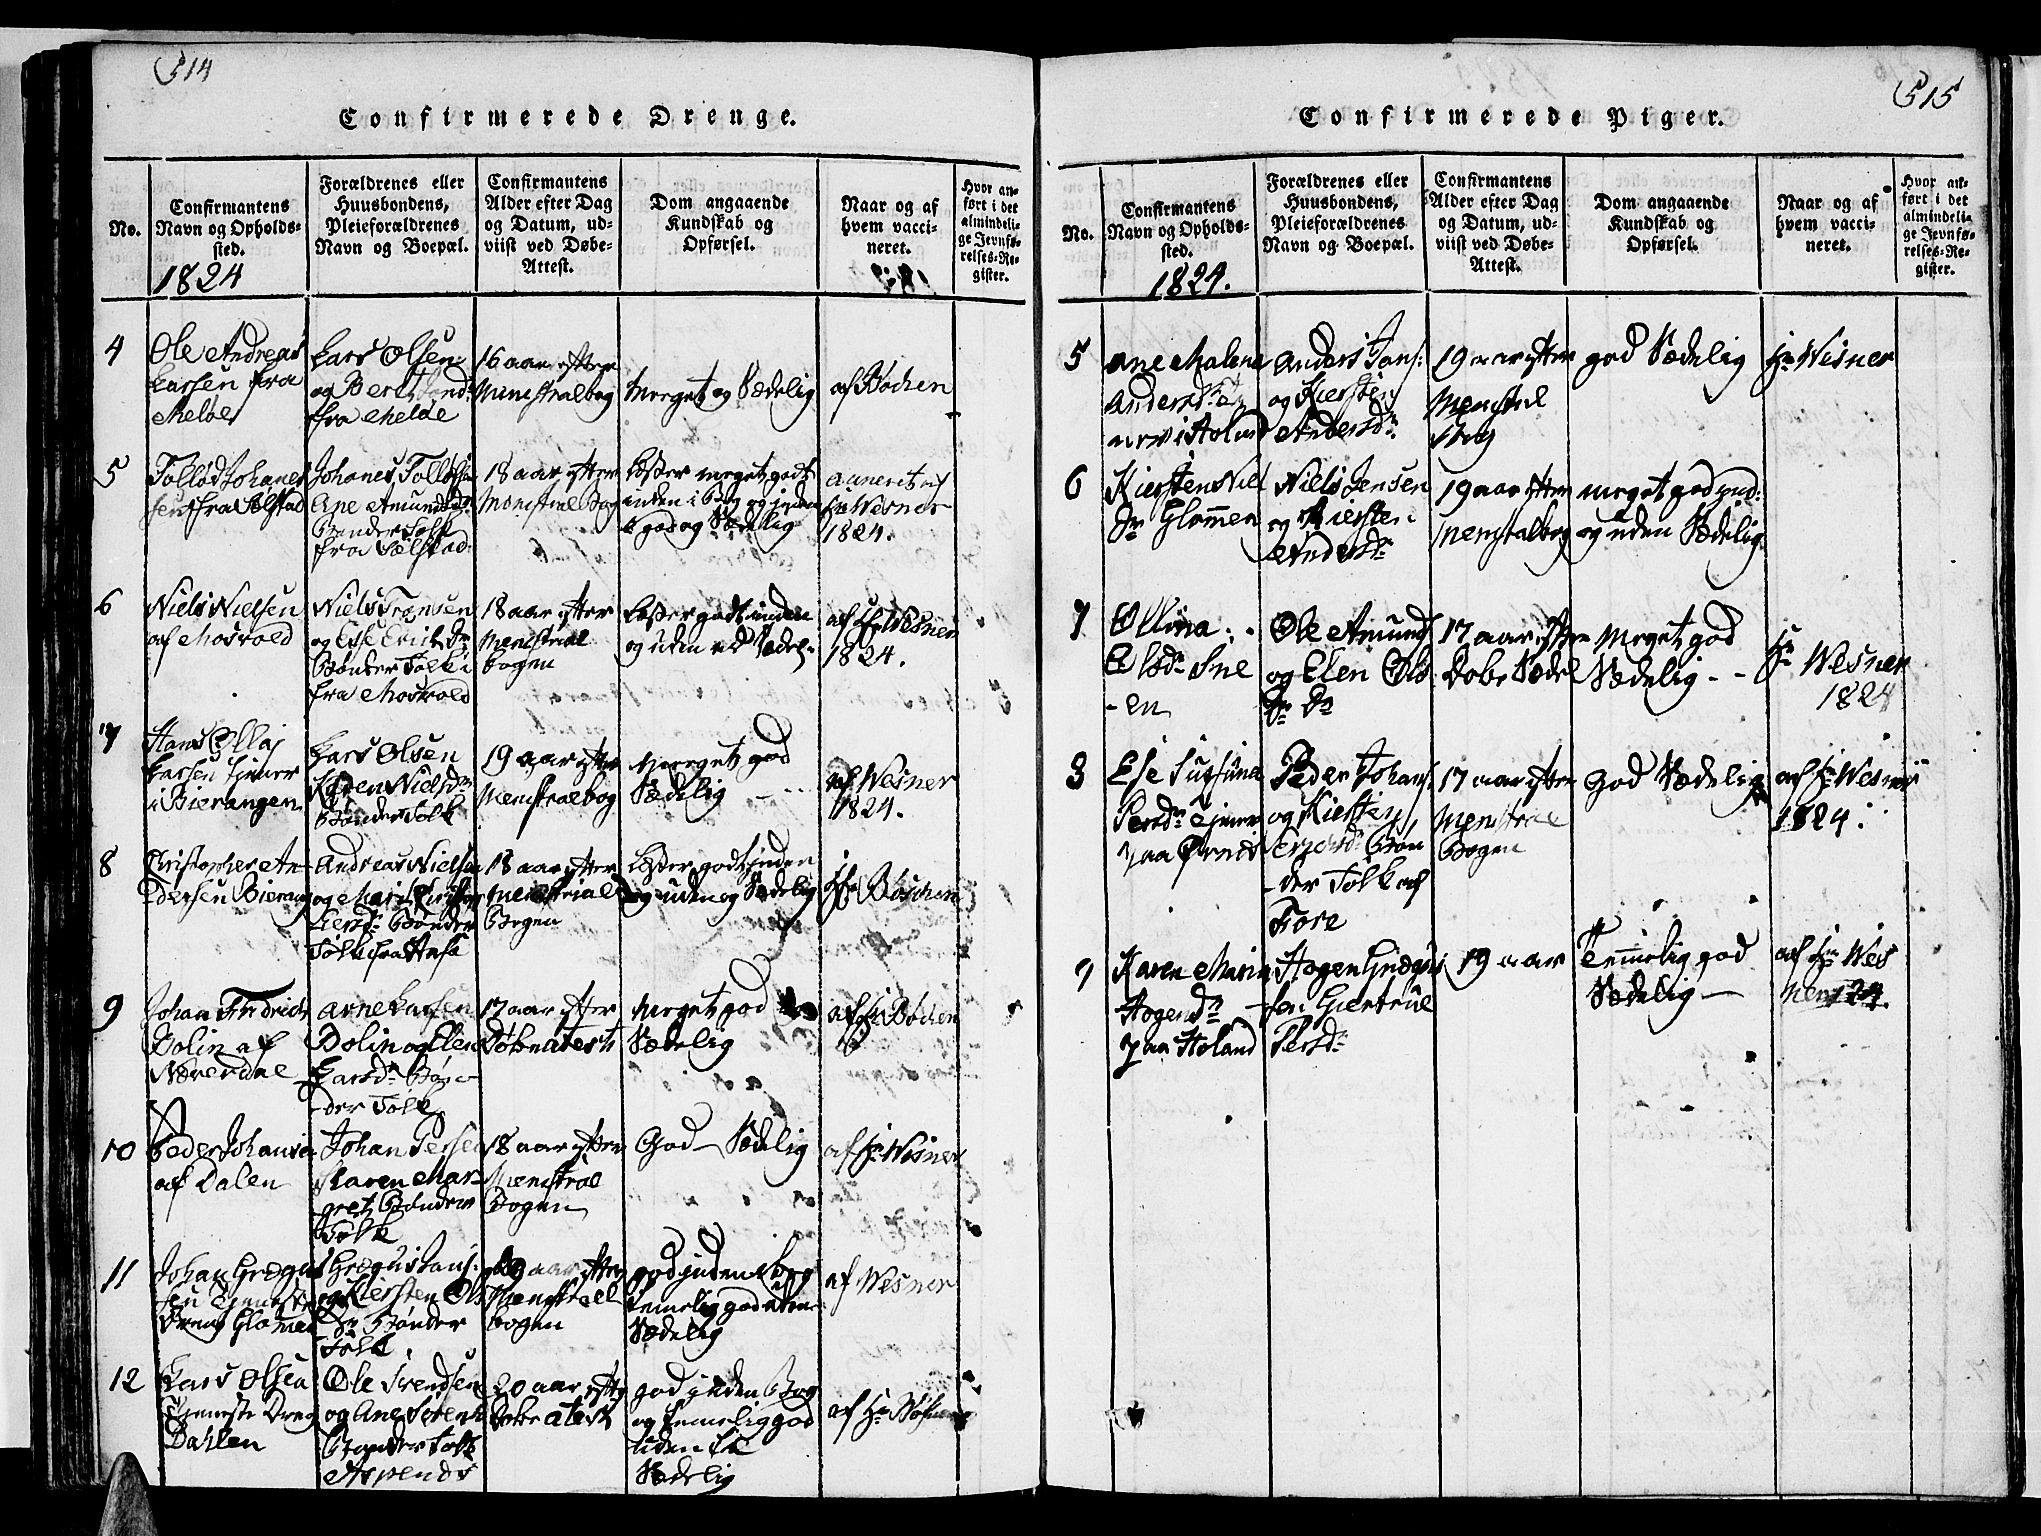 514
Confirmerede Drenge.
No.
Confirmantens
Navn og Opholds-
sted.
1824
Forældrenes eller
Huusbondens,
Pleieforældrenes
Navn og Boepæl.
Confirmantens
Alder efter Dag
og Datum, ud-
viist ved Døbe-
Attest.
Dom angaaende
Kundskab og
Opførsel.
Naar og af
hvem vacci-
neret.
Hvor an-
ført i det
almindeli-
ge Jevnfø-
relses-Re-
gister.
4
Ole Andreas
Larsen fra
Meløe
Lars Olsen
og Berit
fra Meløe
16 aar efter
Menistralbog
Meget og Sædelig
af Bochen
5
Tolløf Johanes
sen fra Selstad
Johanes Tolløfs
Ane Amundsd.
Bønder Folk
fra Selstad
18 aar efter
Menistral Bog
Læser meget godt
inden i Bog og uden
god og Sædelig
Wesner
1824.
6
Niels Nielsen
af Mosvold
Niels Tronsen
og
Bønder Folk
fra Mosvold
18 aar efter
Menistral
bogen
Læser godt inden
og uden ad Sædel.
af Hr Wesner
1824.
7
Hans Ollaj
Larsen tjener
i Bierangen
Lars Olsen
Karen Nielsdr
Bønder Folk
19 aar efter
Menistralbog
Meget god
Sædelig
af Wesner
1824.
8
Christopher An-
dersen Bierang
Andreas Nielsen
og Mari
Larsdr Bønder
Folk fra
18 aar efter
Menistrial
Bogen
Læser godt inden
og uden og Sædelig
Hr Bøschen
9
Johan Fredrich
Dolin af
Nærerdal
Arne Larsen
Dolin og Elen
Larsdr Bøn-
der Folk
17 aar efter
Døbe atest
Meget god
Sædelig
af Hr Bøchen
10
Peder Johansen
af Dalen
Johan Persen
Karen Mar-
gret Bønder
Folk
18 aar efter
Menistral
Bogen
God Sædelig
af Hr Wesner
11
Johan Gregus
sen Tjeneste
Dreng Glomen
Gregus Jans:
og Kiersten Ols
dr Bønder
Folk.
19 aar efter
Menistrall
bogen
god inden bog
temelig god uden
Sædelig
af Wesner
12
Lars Olsen
Tjeneste Dreng
Dahlen
Ole Svendsen
og Ane Sørens
Bønder Folk
20 aar efter
Døbe atest
god inden Bog
og temelig god
uden
Sædelig
af Hr
515
Confirmerede Piger.
No.
Confirmantens
Navn og Opholds-
sted.
1824.
Forældrenes eller
Huusbondens,
Pleieforældrenes
Navn og Boepæl.
Confirmantens
Alder efter Dag
og Datum, ud-
viist ved Døbe-
Attest.
Dom angaaende
Kundskab og
Opførsel.
Naar og af
hvem vacci-
neret.
Hvor an-
ført i det
almindeli-
ge Jevnfø-
relses-Re-
gister.
5
Ane Malena
Andersdr
Anders Jans:
og Kiersten
Andersdr
19 aar efter
Menstral
bog
god Sædelig
Hr Wesner
6
Kiersten Niels
dr Glommen
Niels Jensen
og Kiersten
Andersdr
19 aar efter
Menstalbog
meget god ind:
og uden Sædelig
7
Ollina
Olsdr Sne
-en
Ole Amunds
og Elen Ols
dr
17 aar efter
Døbe Sædel
Meget god
Sædelig - -
Hr Wesner
1824
8
Else Susana
Persdr tjener
paa Ørnes
Peder Johans
og Kiersten
Bøn
-der Folk af
Fore
17 aar efter
Menstral
Bogen
God Sædelig
af Hr Wesner
1824.
9
Karen Marin
Hogensdr
paa Holand
Hogen Gregus
sen Giertrue
Persdr
19 aar
Temelig god
Sædelig
af Hr Wes
ner 124.